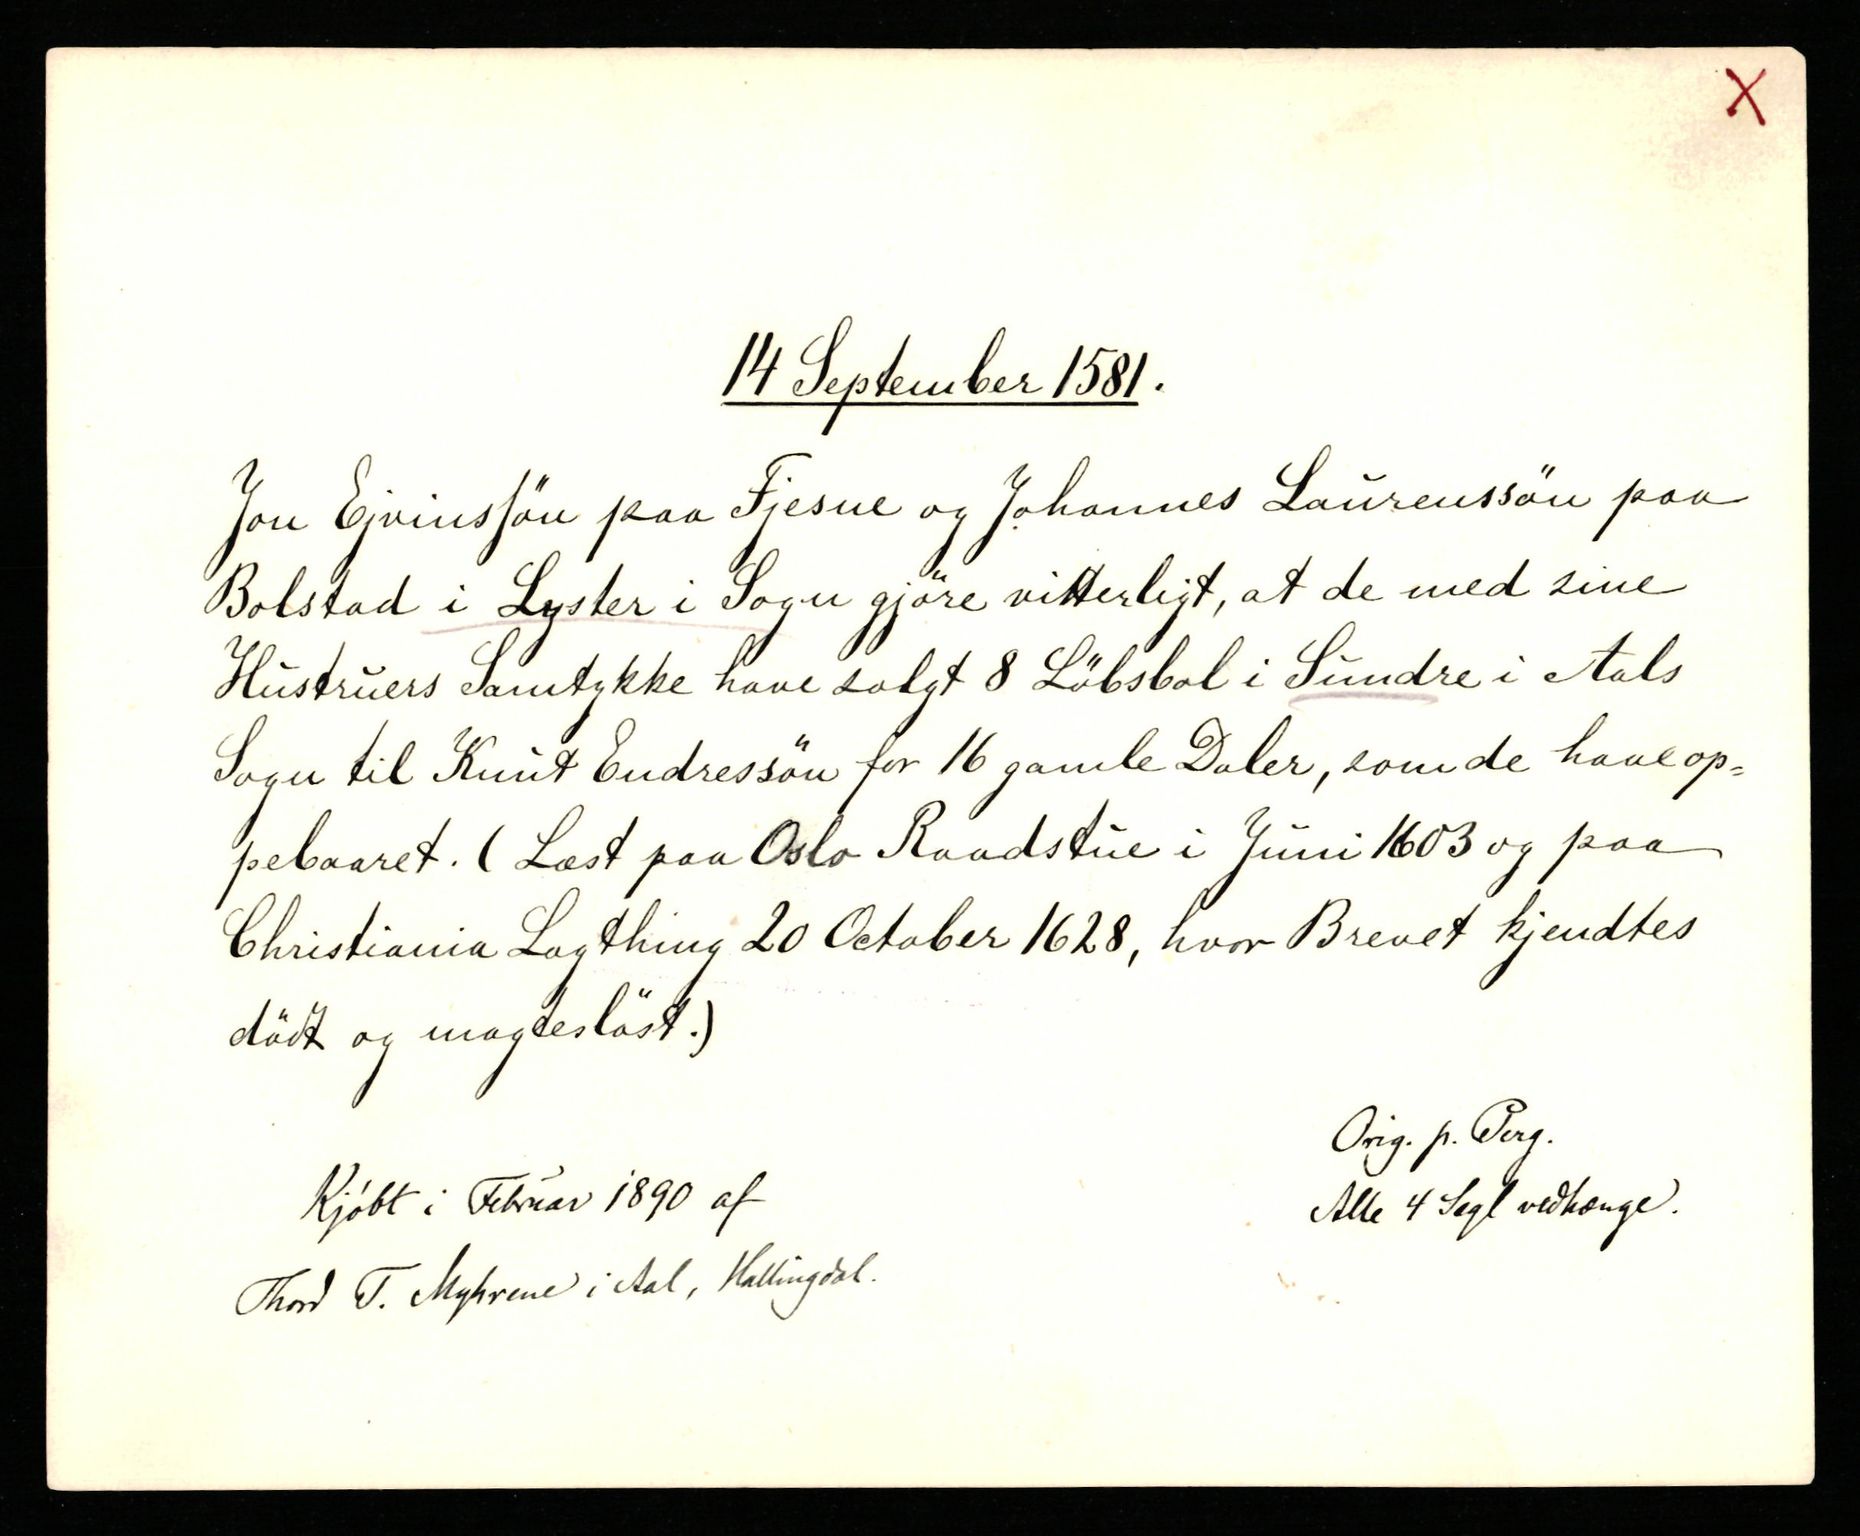 X
14 September 1581.
Jon Ejvinssön paa Fjesne og Johannes Laurenssön paa
Bolstad i Lyster i Sogn gjöre vitterligt, at de med sine
Hustruers Samtykke have solgt 8 Löbsbol i Sundre i Aals
Sogn til Knut Endressön for 16 gamle Daler, som de have op=
pebaaret. (Læst paa Oslo Raadstue i Juni 1603 og paa
Christiania Lagthing 20 October 1628, hvor Brevet kjendtes
dödt og magteslöst.)
Orig. p. Perg.
Alle 4 Segl vedhænge.
Kjøbt i Februar 1890 af
Thord T. Myhrene i Aal, Hallingdal.